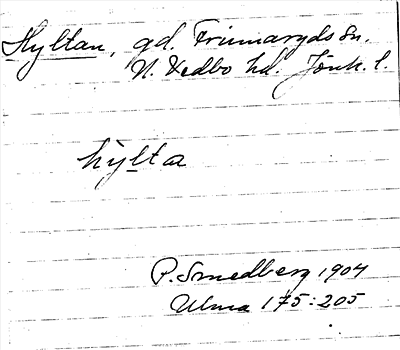 Hyltan, gd. Frinnaryds sn.
N. Vedbo hd. Jönk. l.
hỳlta
P. Smedberg 1904
Ulma 175:205